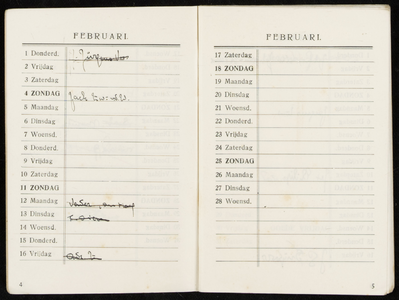 FEBRUARI.
1 Donderd.
2 Vrijdag
3 Zaterdag
4 ZONDAG
5 Maandag
6 Dinsdag
7 Woensd.
8 Donderd.
9 Vrijdag
10 Zaterdag
11 ZONDAG
12 Maandag
13 Dinsdag
14 Woensd.
15 Donderd.
16 Vrijdag
4
FEBRUARI.
17 Zaterdag
18 ZONDAG
19 Maandag
20 Dinsdag
21 Woensd.
22 Donderd.
23 Vrijdag
24 Zaterdag
25 ZONDAG
26 Maandag
27 Dinsdag
28 Woensd.
5